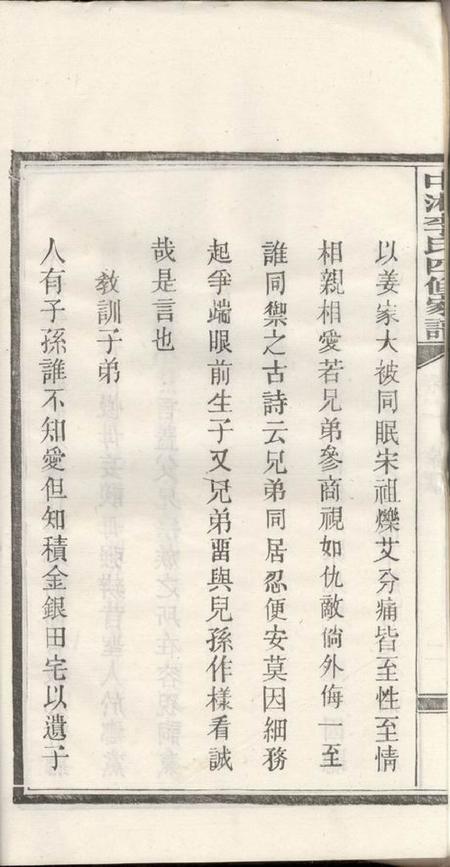 中湘李氏四修家譜
以姜家大被同眠宋祖爍艾分痛皆至性至情
相親相愛若兄弟參商視如仇敵倘外侮一至
誰同禦之古詩云兄弟同居忍便安莫因細務
起爭端眼前生子又兄弟畱與兒孫作樣看誠
哉是言也
教訓子弟
人有子孫誰不知愛但知積金銀田宅以遺子